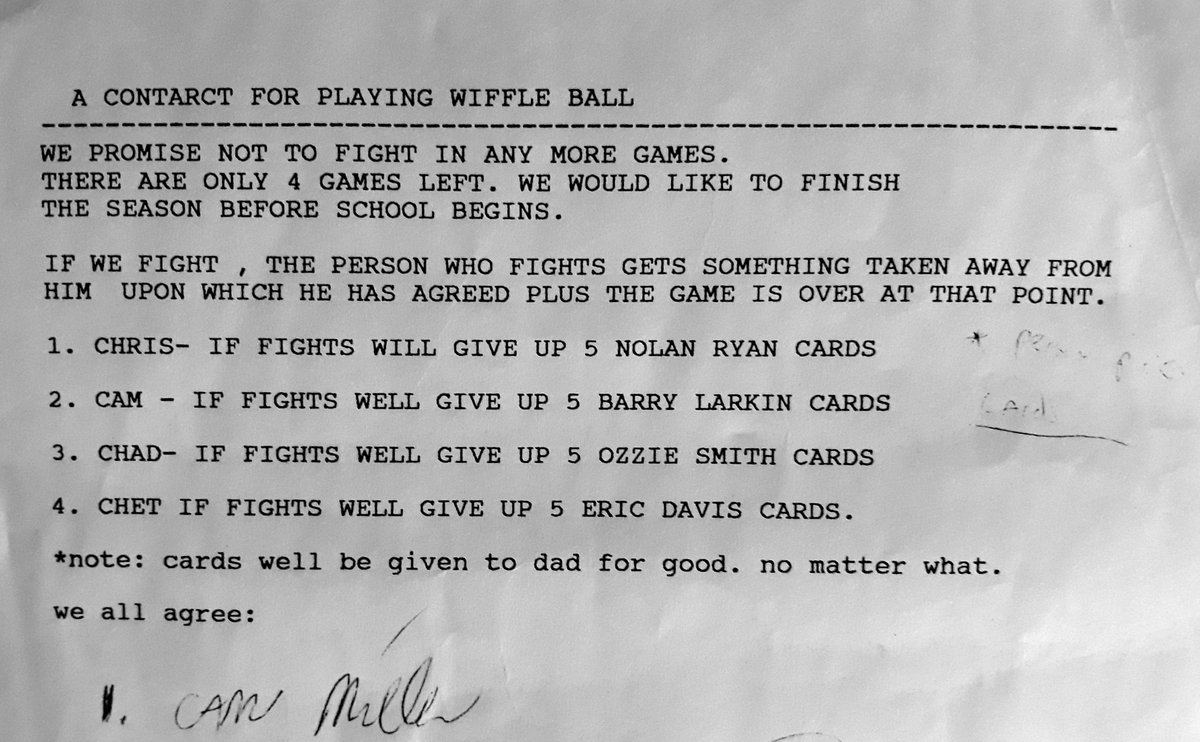 A CONTARCT FOR PLAYING WIFFLE BALL
--------------------------------------------------------------------
WE PROMISE NOT TO FIGHT IN ANY MORE GAMES.
THERE ARE ONLY 4 GAMES LEFT. WE WOULD LIKE TO FINISH
THE SEASON BEFORE SCHOOL BEGINS.
IF WE FIGHT , THE PERSON WHO FIGHTS GETS SOMETHING TAKEN AWAY FROM
HIM  UPON WHICH HE HAS AGREED PLUS THE GAME IS OVER AT THAT POINT.
1. CHRIS- IF FIGHTS WILL GIVE UP 5 NOLAN RYAN CARDS
*
2. CAM - IF FIGHTS WELL GIVE UP 5 BARRY LARKIN CARDS
Cards
3. CHAD- IF FIGHTS WELL GIVE UP 5 OZZIE SMITH CARDS
4. CHET IF FIGHTS WELL GIVE UP 5 ERIC DAVIS CARDS.
*note: cards well be given to dad for good. no matter what.
we all agree:
1. CAM Miller